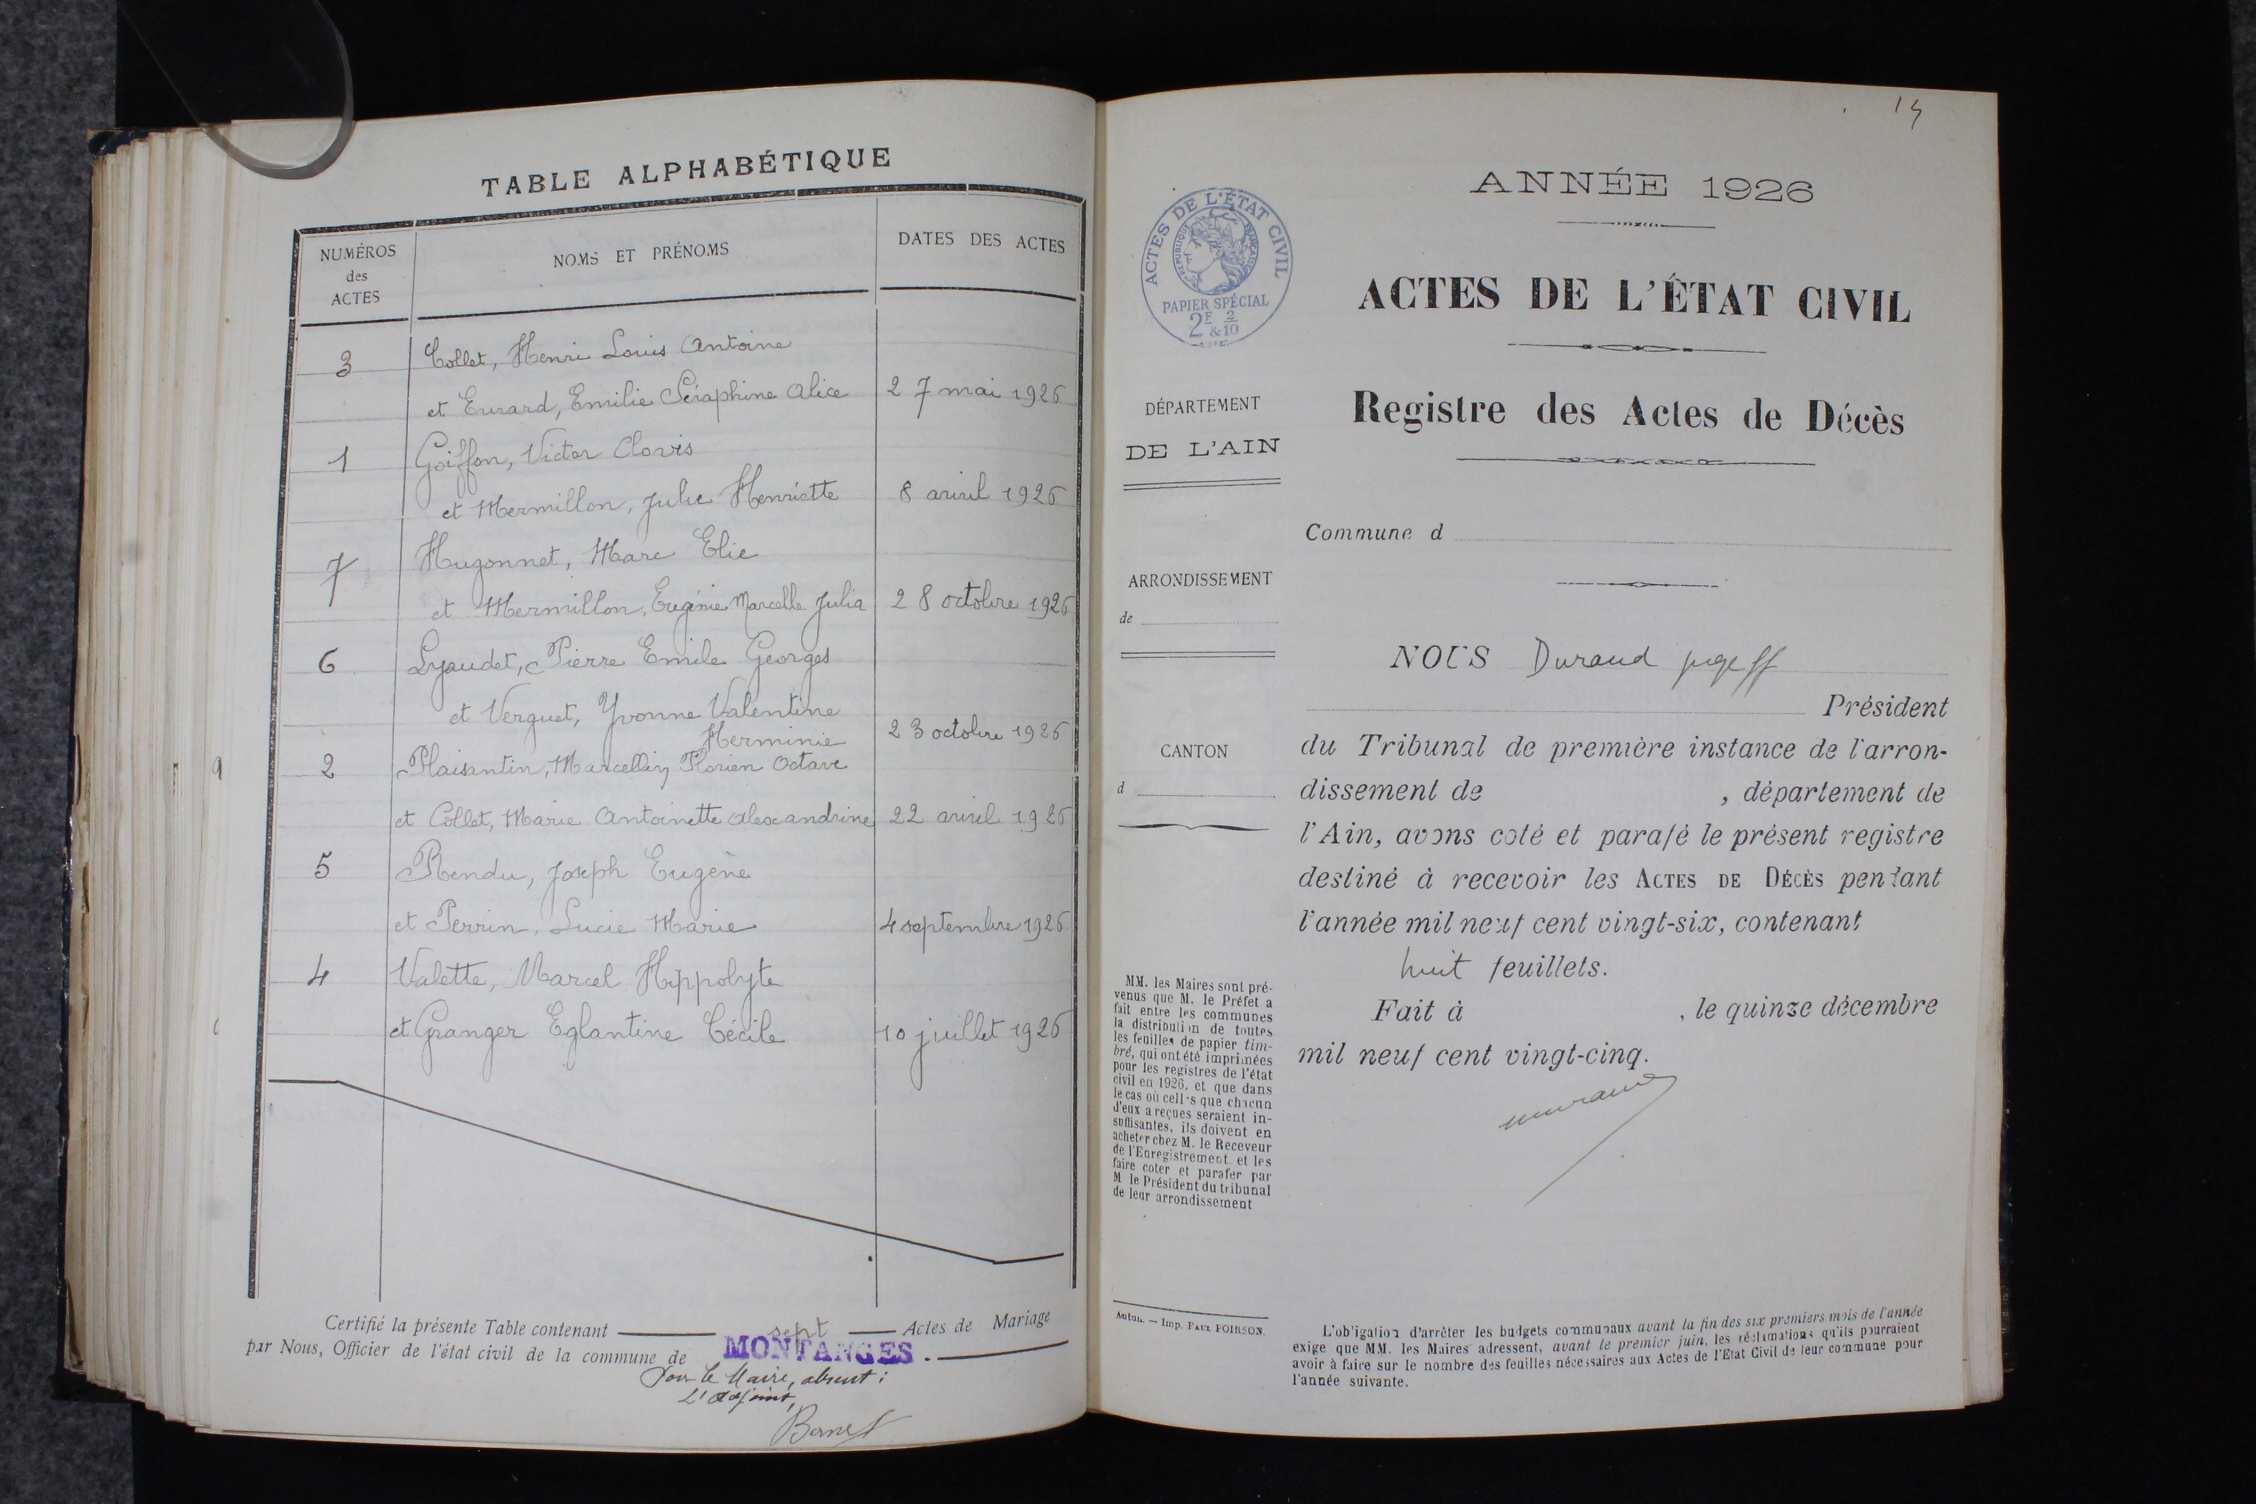 TABLE ALPHABÉTIQUE
NUMÉROS
des
ACTES
NOMS ET PRÉNOMS
DATES DES ACTES
3
Collet, Henri Louis Antoine
et Evrard, Emilie Séraphine Alice 27 mai 1926
1
Goiffon, Victor Clovis
et Mermillon, Julie Henriette 8 avril 1926
7
Hugonnet, Marc Elie
et Mermillon, Eugénie Marcelle Julia 28 octobre 1926
6
Lyaudet, Pierre Emile Georges
et Verguet, Yvonne Valentine
Herminie 23 octobre 1926
2
Plaisantin, Marcellin Florien Octave
et Collet, Marie Antoinette Alexandrine 22 avril 1926
5
Rendu, Joseph Eugène
et Perrin, Lucie Marie 4 septembre 1926
4
Valette, Marcel Hippolyte
et Granger Eglantine Cécile 10 juillet 1926
Certifié la présente Table contenant sept Actes de Mariage
par Nous, Officier de l'état civil de la commune de MONTANGES.
Pour le Maire, absent :
L'Adjoint,
14
ANNÉE 1926
ACTES DE L'ÉTAT CIVIL
RÉPUBLIQUE FRANÇAISE
PAPIER SPÉCIAL
2F & 2/10
ACTES DE L'ÉTAT CIVIL
Registre des Actes de Décès
DÉPARTEMENT
DE L'AIN
ARRONDISSEMENT
de
CANTON
d
Commune d
NOUS Durand
Président
du Tribunal de première instance de l'arron-
dissement de , département de
l'Ain, avons coté et parafé le présent registre
destiné à recevoir les ACTES DE DÉCÈS pendant
l'année mil neuf cent vingt-six, contenant
huit feuillets.
Fait à , le quinze décembre
mil neuf cent vingt-cinq.
MM. les Maires sont pré-
venus que M. le Préfet a
fait entre les communes
la distribution de toutes
les feuilles de papier tim-
bré, qui ont été imprimées
pour les registres de l'état
civil en 1926, et que dans
le cas où celles que chacun
d'eux a reçues seraient in-
suffisantes, ils doivent en
acheter chez M. le Receveur
de l'Enregistrement et les
faire coter et parafer par
M le Président du tribunal
de leur arrondissement
Autun. — Imp. PAUL POIRSON.
L'obligation d'arrêter les budgets communaux avant la fin des six premiers mois de l'année
exige que MM. les Maires adressent, avant le premier juin, les réclamations qu'ils pourraient
avoir à faire sur le nombre des feuilles nécessaires aux Actes de l'Etat Civil de leur commune pour
l'année suivante.